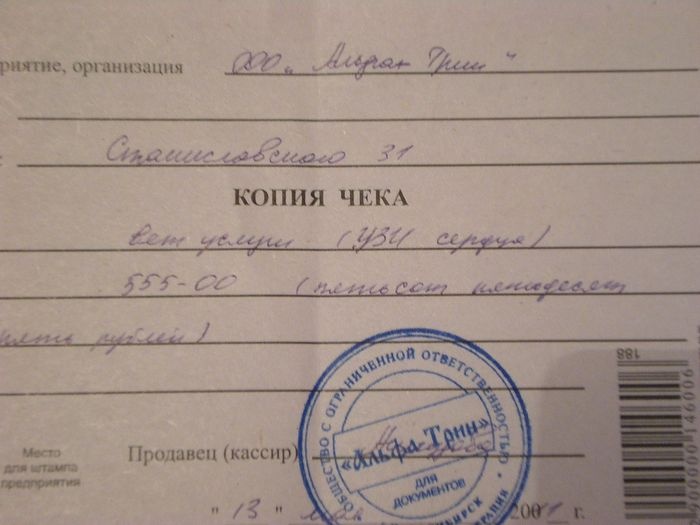 риятие, организация ООО „Альфа Трин“
Станиславского 31
КОПИЯ ЧЕКА
вет услуги (УЗИ сердца)
555-00 (пятьсот пятьдесят
пять рублей)
188
ОБЩЕСТВО С ОГРАНИЧЕННОЙ ОТВЕТСТВЕННОСТЬЮ
«Альфа-Трин»
ДЛЯ
ДОКУМЕНТОВ
Место
для штампа
предприятия
Продавец (кассир)
" 13 " г.